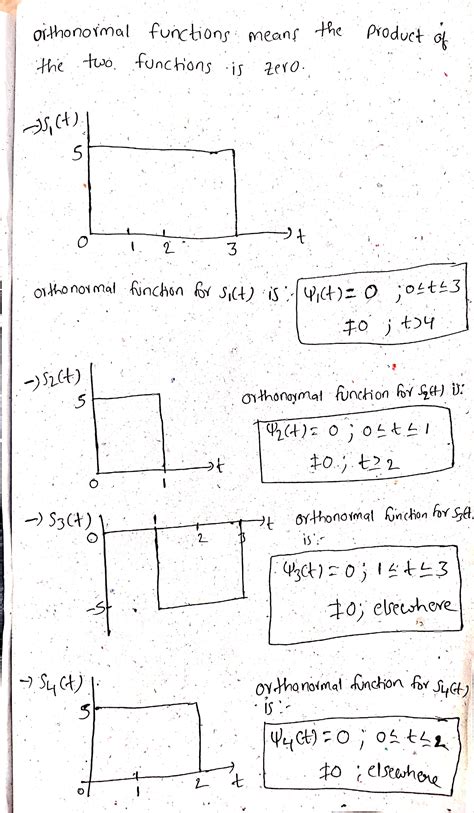 orthonormal functions means the product of
the two functions is zero.
→ S₁(t)
5
0 1 2 3 → t
orthonormal function for S₁(t) is :- ψ₁(t) = 0 ; 0≤t≤3
≠0 ; t>4
→ S₂(t)
5
0 1 → t
orthonormal function for S₂(t) is:
ψ₂(t) = 0 ; 0≤t≤1
≠0 ; t>2
→ S₃(t)
0 2 3 → t
-5
orthonormal function for S₃(t)
is :-
ψ₃(t) = 0 ; 1≤t≤3
≠0 ; elsewhere
→ S₄(t)
5
0 1 2 t
orthonormal function for S₄(t)
is :-
ψ₄(t) = 0 ; 0≤t≤2
≠0 ; elsewhere